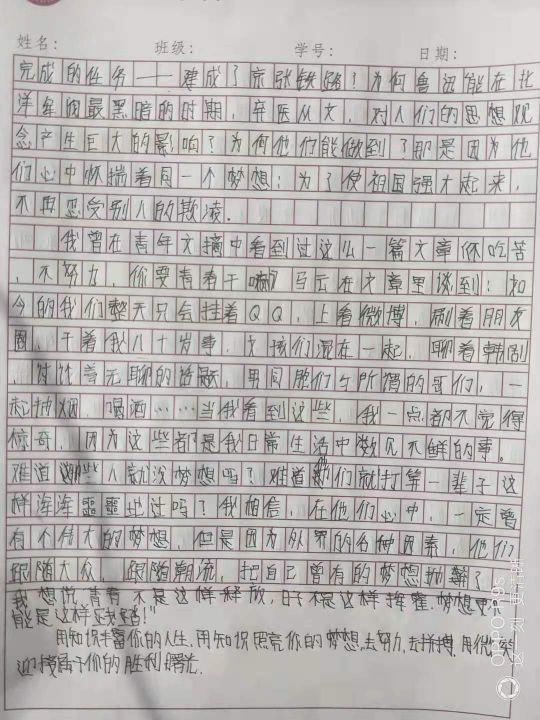 姓名： 班级： 学号： 日期：
完成的任务——建成了京张铁路？为何鲁迅能在北
洋军阀最黑暗的时期，弃医从文，对人们的思想观
念产生巨大的影响？为何他们能做到？那是因为他
们心中怀揣着同一个梦想：为了使祖国强大起来，
不再忍受别人的欺凌。
我曾在青年文摘中看到过这么一篇文章《不吃苦
，不努力，你要青春干嘛》马云在文章里谈到：如
今的我们整天只会挂着QQ，上着微博，刷着朋友
圈，干着我八十岁事，女孩们混在一起，聊着韩剧
，讨论着无聊的话题，男同胞们与所谓的哥们，一
起抽烟，喝酒……当我看到这些，我一点都不觉得
惊奇，因为这些都是我日常生活中数见不鲜的事。
难道那些人就没梦想吗？难道他们就打算一辈子这
样浑浑噩噩地过吗？我相信，在他们心中，一定曾
有个伟大的梦想，但是因为外界的各种因素，他们
跟随大众，跟随潮流，把自己曾有的梦想抛弃了。
我想说"青春不是这样释放，日子不是这样挥霍，梦想更不
能是这样践踏！"
用知识丰富你的人生，用知识照亮你的梦想，去努力，去拼搏，用微笑
迎接属于你的胜利曙光。
OPPO R9s